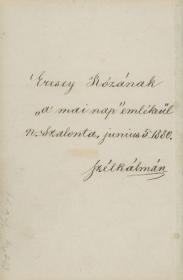 Ercsey Rózának
„a mai nap” emlékeül
N. Szalonta, junius 5. 1880.
Szélkálmán